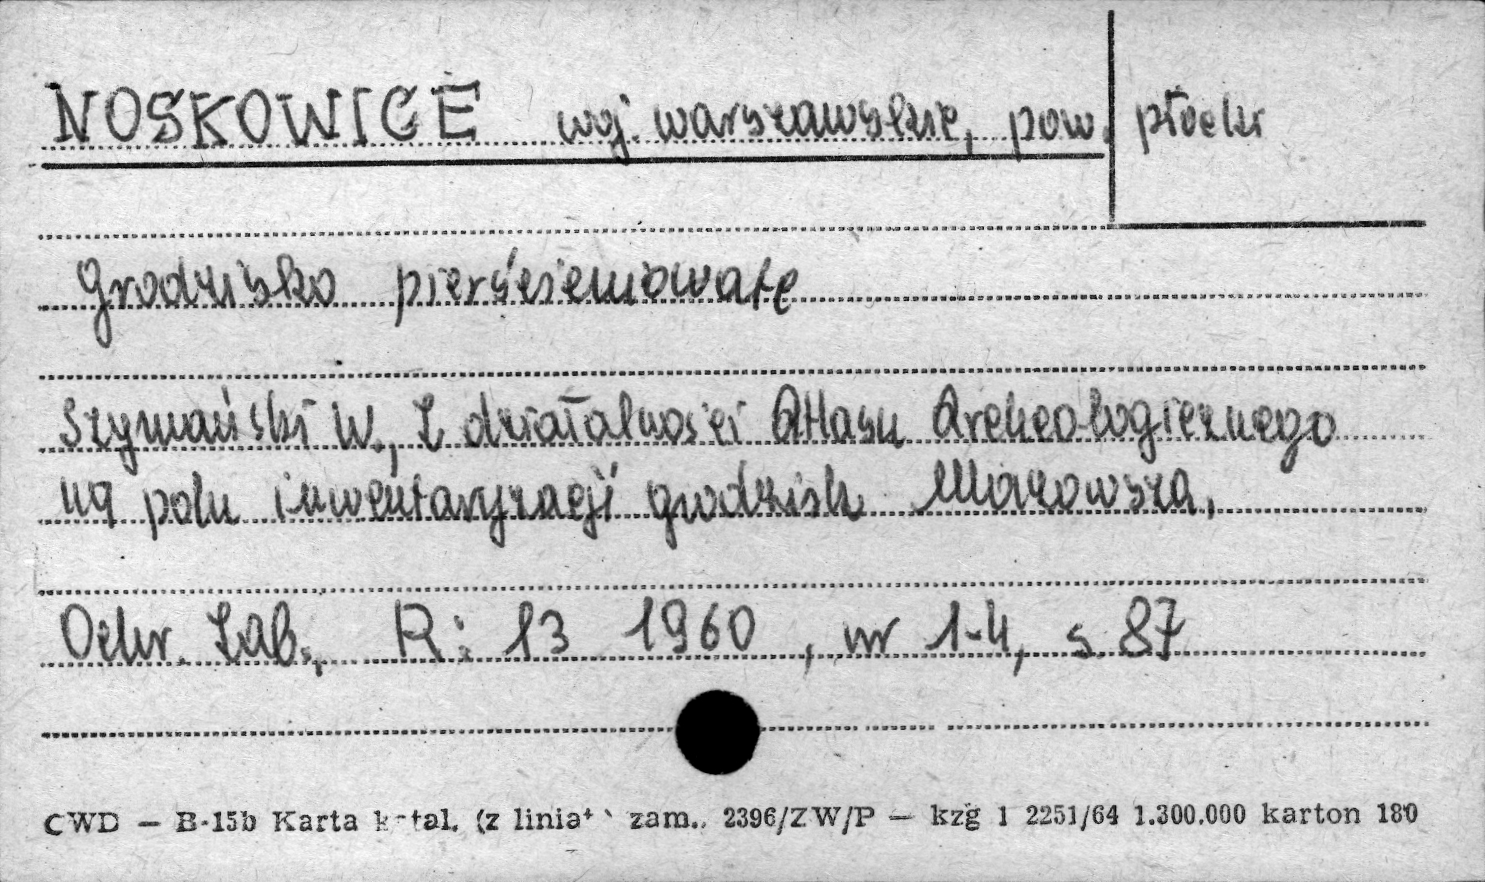 NOSKOWICE woj. warszawskie, pow. płocki
Grodzisko pierścieniowate
Szymański W., Z działalności Atlasu Archeologicznego
na polu inwentaryzacji grodzisk Mazowsza,
Ochr. Zab., R: 13 1960, nr 1-4, s. 87
CWD — B-15b Karta katal. (z linia zam. 2396/ZW/P — kzg 1 2251/64 1.300.000 karton 180